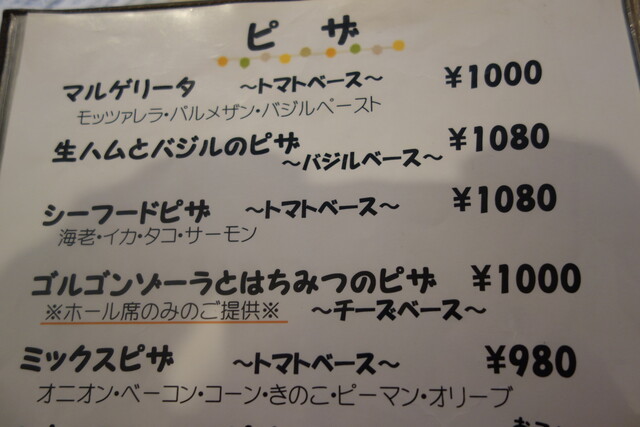 ピザ
マルゲリータ ～トマトベース～ ¥1000
モッツァレラ・パルメザン・バジルペースト
生ハムとバジルのピザ ～バジルベース～ ¥1080
シーフードピザ ～トマトベース～ ¥1080
海老・イカ・タコ・サーモン
ゴルゴンゾーラとはちみつのピザ ¥1000
※ホール席のみのご提供※ ～チーズベース～
ミックスピザ ～トマトベース～ ¥980
オニオン・ベーコン・コーン・きのこ・ピーマン・オリーブ